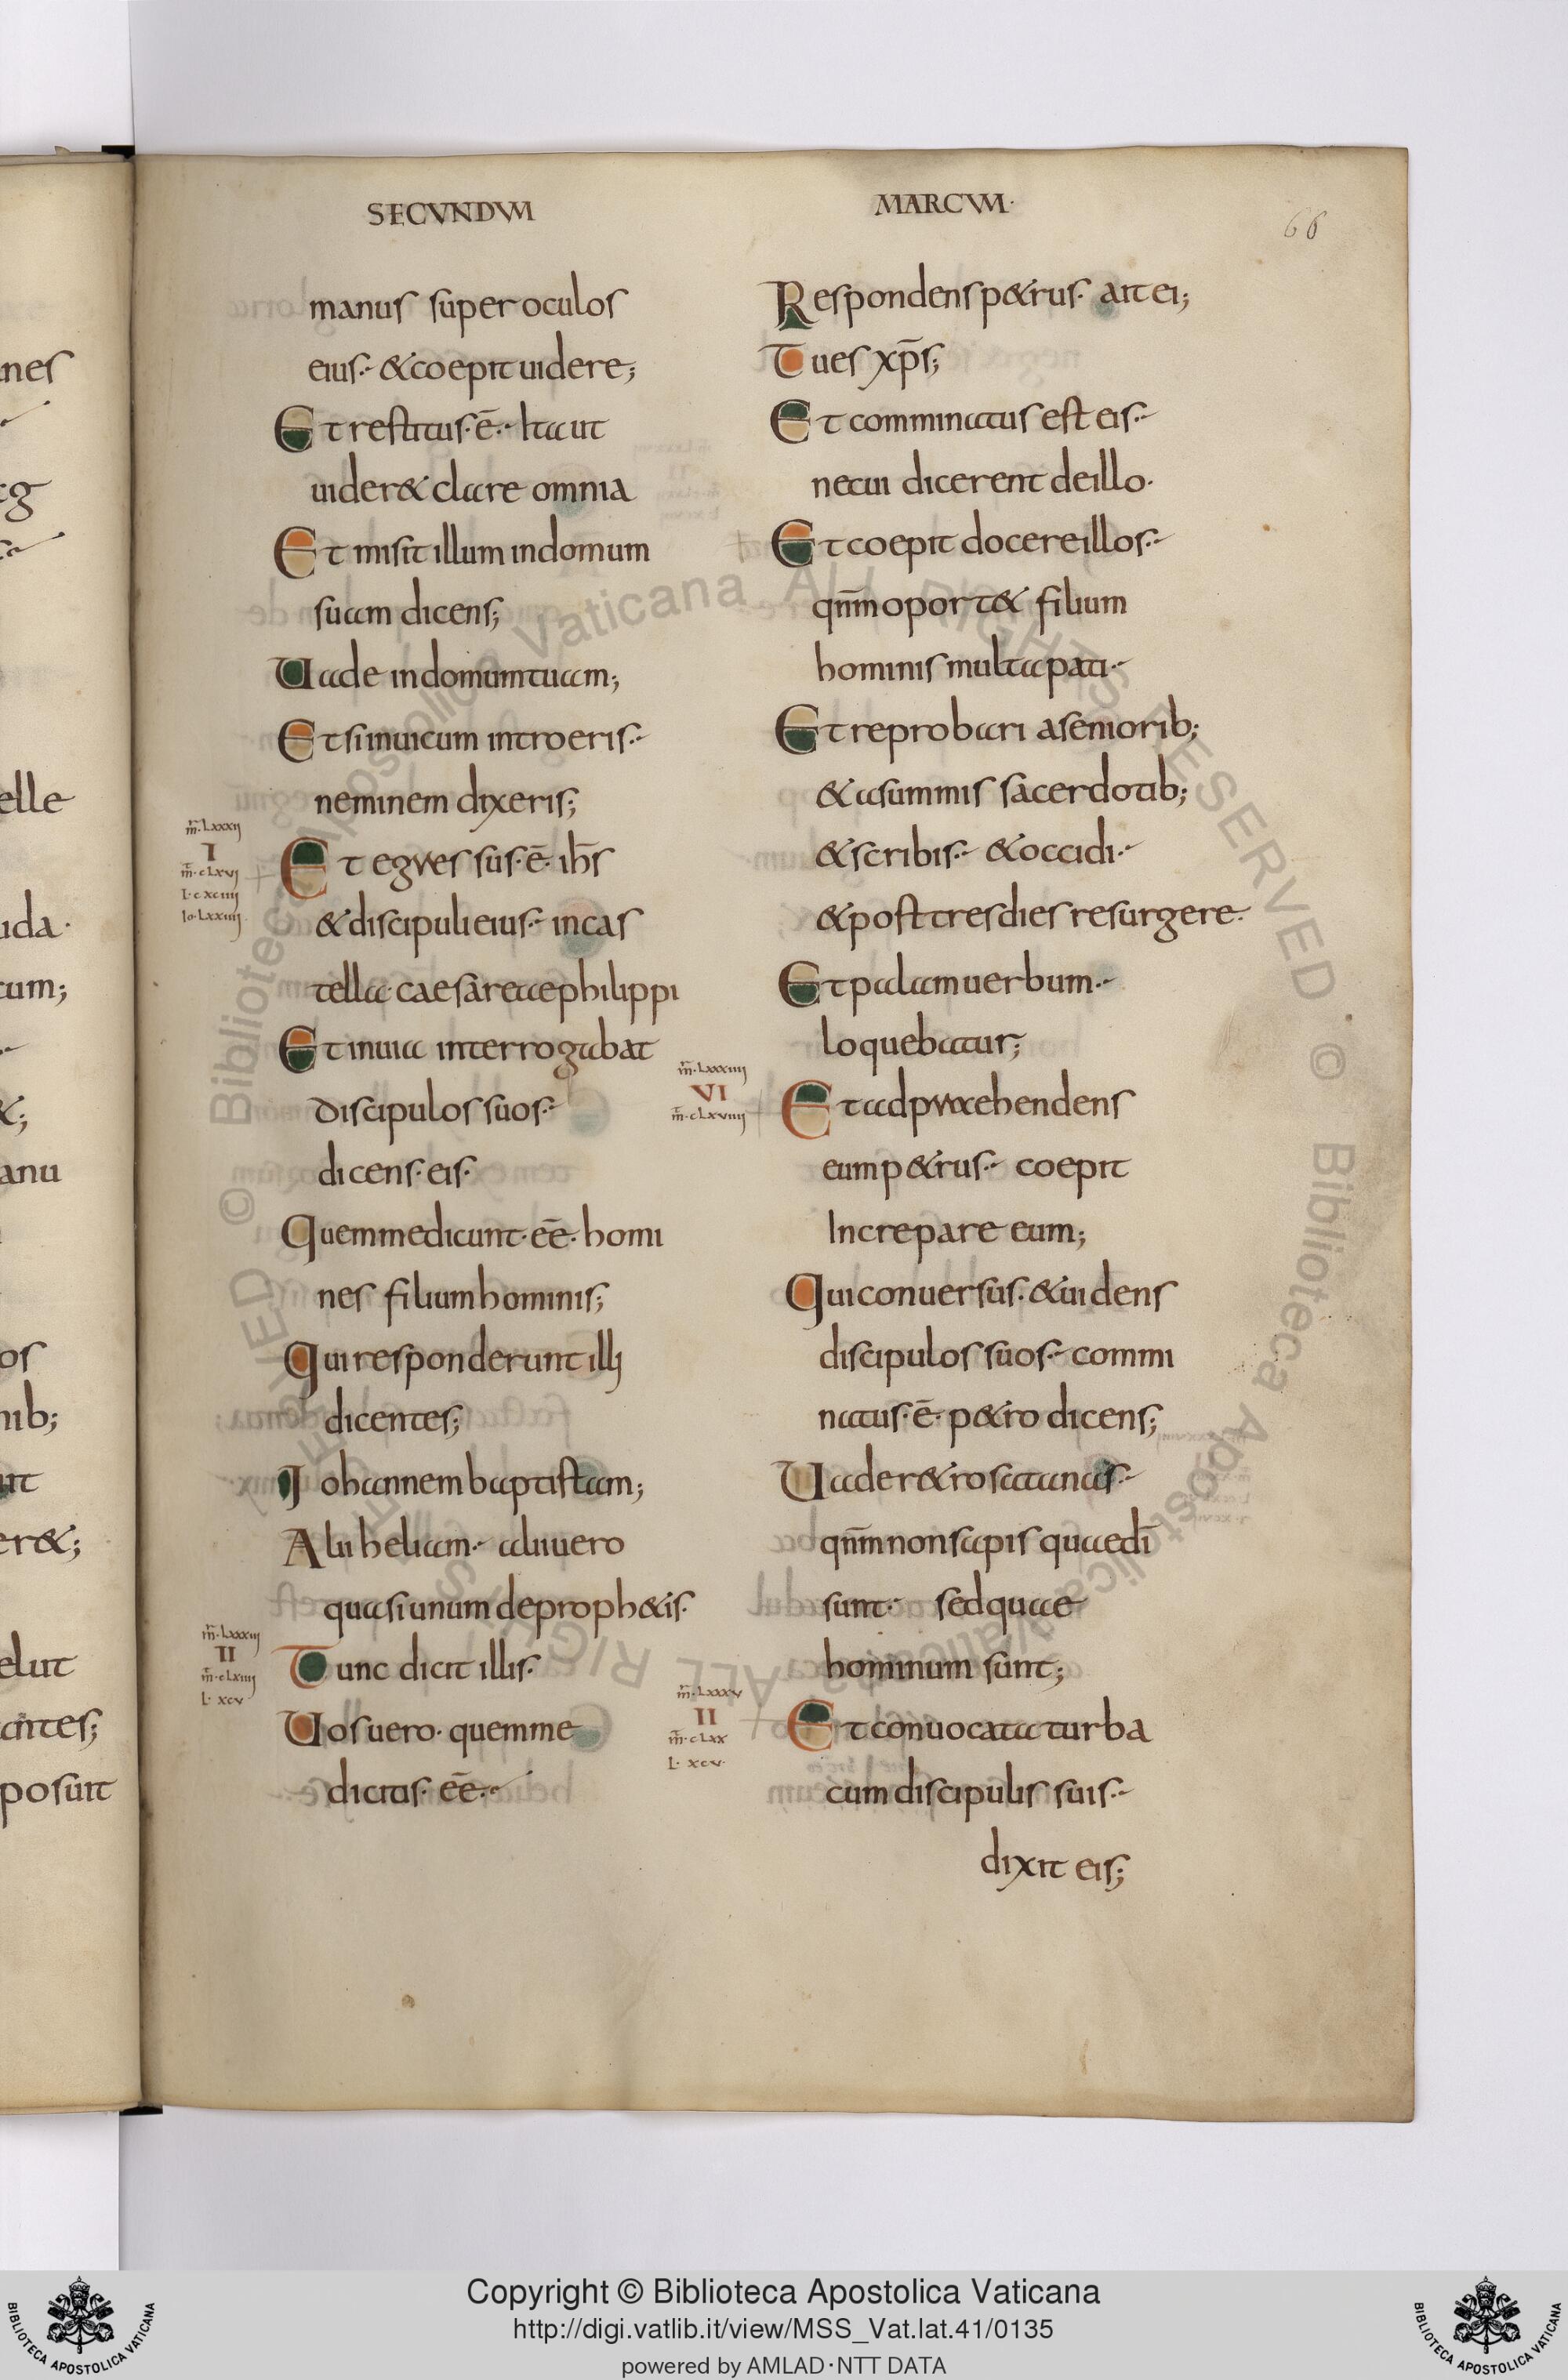 SECVNDVM
manus super oculos
eius· & coepit uidere;
Et restitus· ē· Ita ut
uider& clare omnia
Et misit illum in domum
suam dicens;
Uade in domum tuam;
Et si in uicum introeris·
nemine m dixeris;
m̄·Lxxxij
I
m̄·cLxvj
L·cxciiij
Io·Lxxiiij
Et egressus· ē· ih̄s
& discipuli eius· in cas
tella· caesareae philippi
Et in uia interrogabat
discipulos suos·
dicens· eis·
Quem me dicunt· eē· homi
nes filium hominis;
Qui responderunt illj
dicentes;
Johannem baptistam;
Alii heliam· alii uero
quasi unum de proph&is·
m̄·Lxxxiij
II
m̄·cLxiiij
L·xcv
Tunc dicit illis·
Uos uero· quem me
dicitis· eē·
MARCVM·
66
Respondens p&rus· ait ei;
Tu es xp̄s;
Et comminatus est eis·
ne cui dicerent de illo·
Et coepit docere illos·
qn̄m oport& filium
hominis multa pati·
Et reprobari a seniorib;
& a summis sacerdotib;
& scribis· & occidi·
& post tres dies resurgere·
Et palam uerbum·
loquebatur;
m̄·Lxxxiiij
VI
m̄·cLxviiij
Et adprehendens
eum p&rus· coepit
Increpare eum;
Qui conuersus· & uidens
discipulos suos· commi
natus· ē· p&ro dicens;
Uade r&ro satanas·
qn̄m non sapis quae dī
sunt· sed quae
hominum sunt;
m̄·Lxxxv
II
m̄·cLxx
L·xcv·
Et conuocata turba
cum discipulis suis·
dixit eis;
nes
elle
uda·
cum;
anu
os
nib;
er&;
elut
antes;
posuit
© Biblioteca Apostolica Vaticana ALL RIGHTS RESERVED © Biblioteca Apostolica Vaticana ALL RIGHTS RESERVED
Copyright © Biblioteca Apostolica Vaticana
http://digi.vatlib.it/view/MSS_Vat.lat.41/0135
powered by AMLAD·NTT DATA
BIBLIOTECA APOSTOLICA VATICANA
BIBLIOTECA APOSTOLICA VATICANA